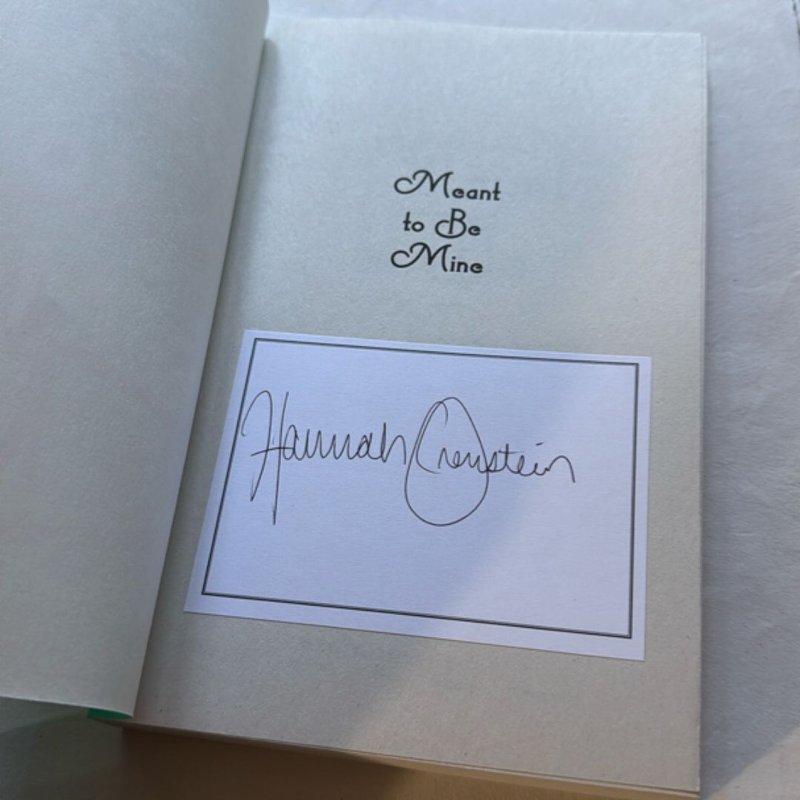 Meant
to Be
Mine
Hannah Orenstein